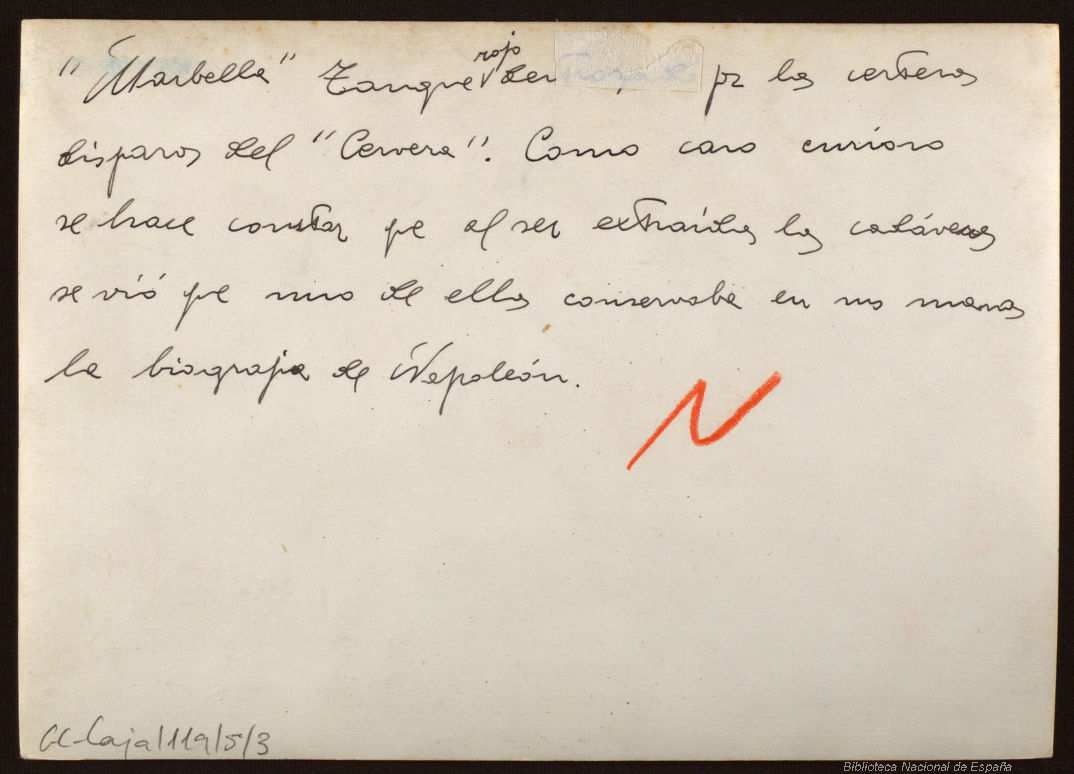 "Marbella" Tanque rojo por los certeros
disparos del "Cervera". Como caso curioso
se hace constar que al ser extraídos los cadáveres
se vió que uno de ellos conservaba en sus manos
la biografia de Napoleón.
N
GC-Caja/119/5/3
Biblioteca Nacional de España